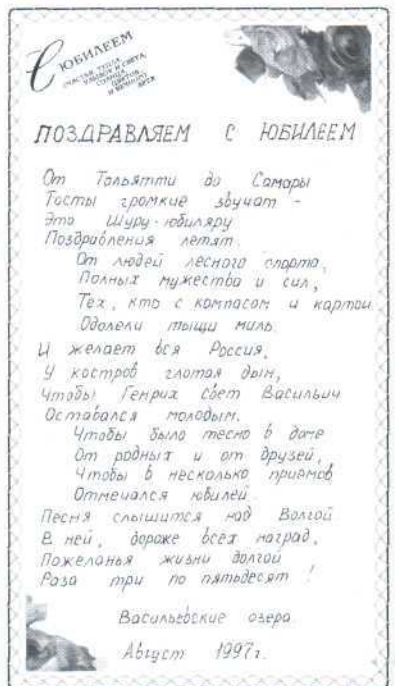 С ЮБИЛЕЕМ
СЧАСТЬЯ, ТЕПЛА,
УЛЫБОК И СВЕТА,
СОЛНЦА,
ЦВЕТОВ
И ВЕЧНОГО
ЛЕТА
ПОЗДРАВЛЯЕМ С ЮБИЛЕЕМ
От Тольятти до Самары
Тосты громкие звучат -
Это Шуру-юбиляру
Поздравления летят.
От людей лесного спорта,
Полных мужества и сил,
Тех, кто с компасом и картой
Одолели тыщи миль.
И желает вся Россия,
У костров глотая дым,
Чтобы Генрих свет Васильич
Оставался молодым.
Чтобы было тесно в доме
От родных и от друзей,
Чтобы в несколько приемов
Отмечался юбилей.
Песня слышится над Волгой
В ней, дороже всех наград,
Пожеланья жизни долгой
Раза три по пятьдесят!
Васильевские озера
Август 1997г.